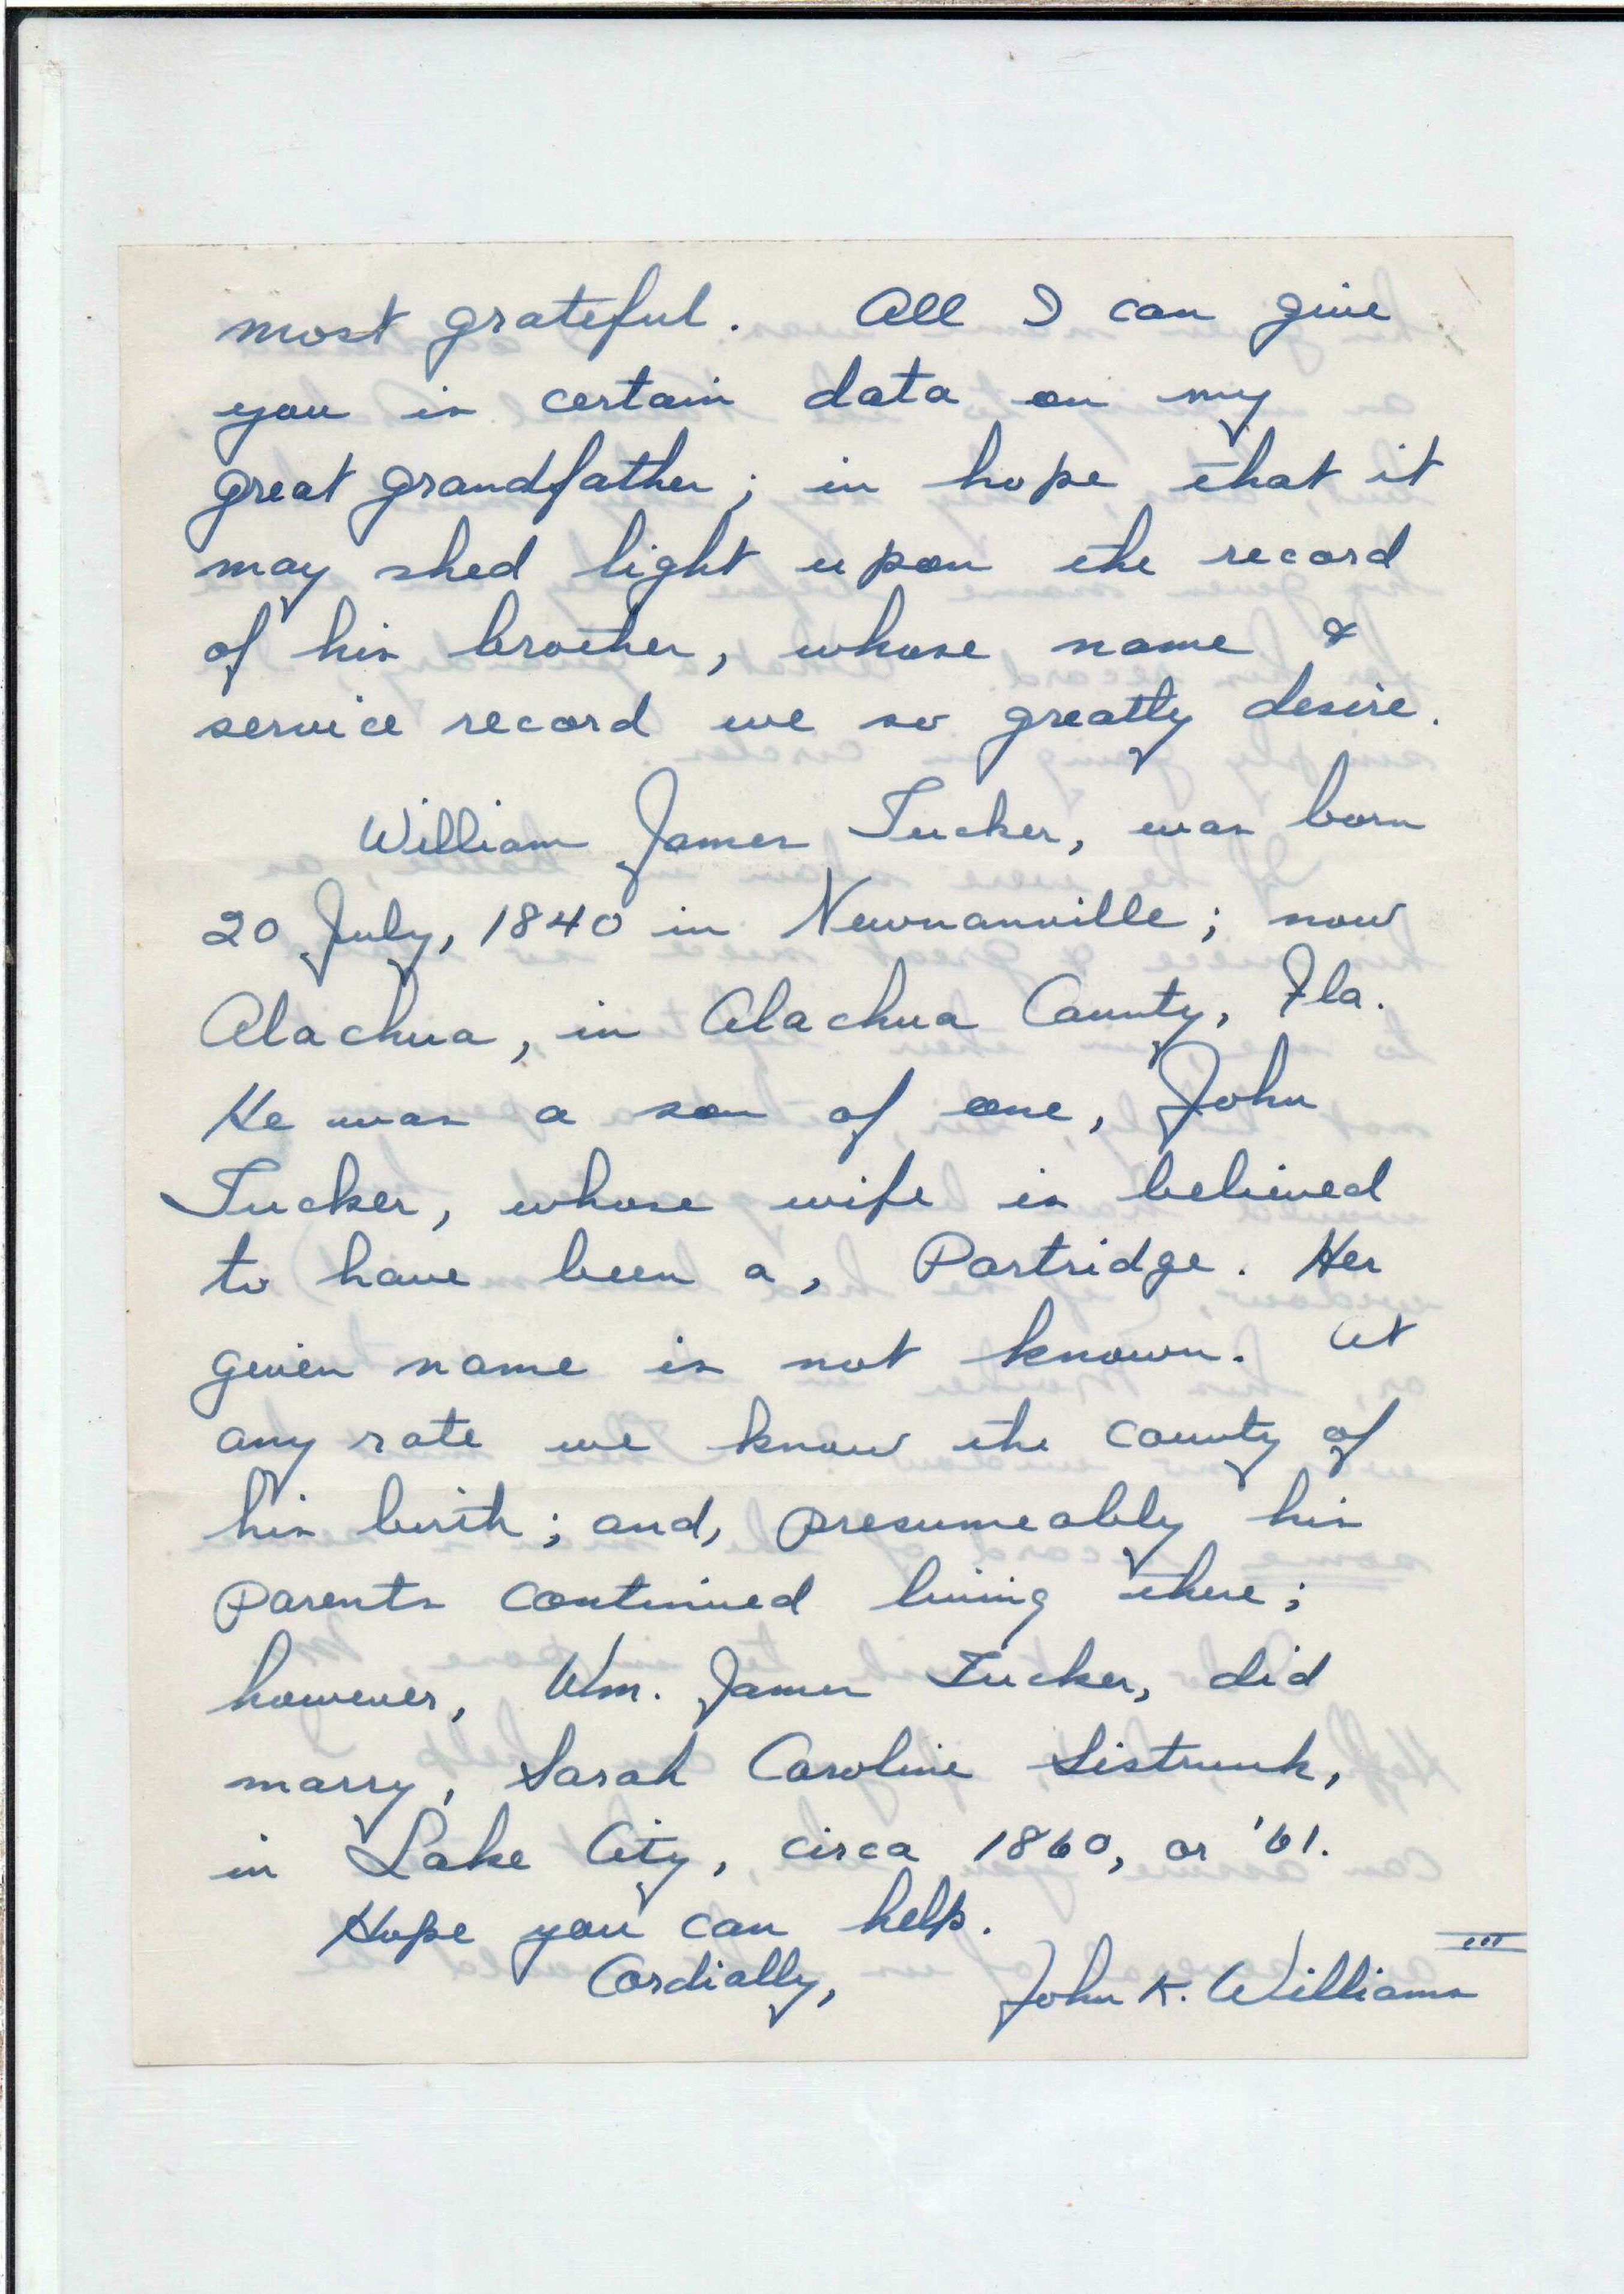 most grateful. All I can give
you is certain data on my
great grandfather; in hope that it
may shed light upon the record
of his brother, whose name &
service record we so greatly desire.
William James Tucker, was born
20 July, 1840 in Newnanville; now
Alachua, in Alachua County, Fla.
He was a son of one, John
Tucker, whose wife is believed
to have been a, Partridge. Her
given name is not known. At
any rate we know the county of
his birth; and, presumeably his
parents continued living there;
however, Wm. James Tucker, did
marry, Sarah Caroline Sistrunk,
in Lake City, circa 1860, or '61.
Hope you can help.
Cordially, John K. Williams III